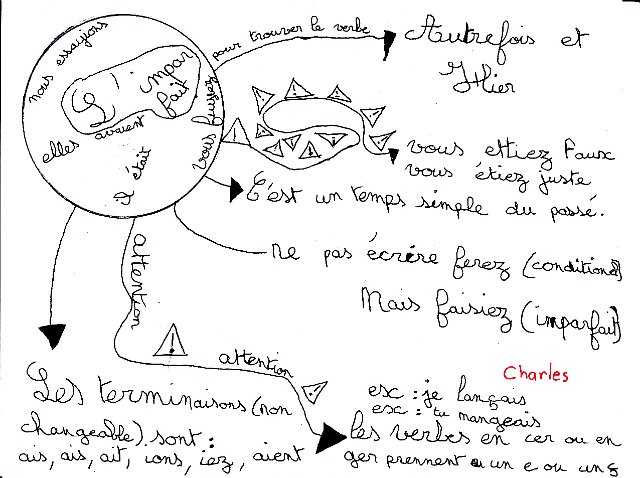 nous essayions
L'impar
fait
elles avaient
il était
vous
pour trouver le verbe
Autrefois et
Hier
vous ettiez Faux
vous étiez juste
C'est un temps simple du passé.
ne pas écrire ferez (conditionel)
Mais faisiez (imparfait)
attention
attention
Les terminaisons (non
changeable) sont :
ais, ais, ait, ions, iez, aient
Charles
esc : je lançais
esc : tu mangeais
les verbes en cer ou en
ger prennent ou un e ou un ç